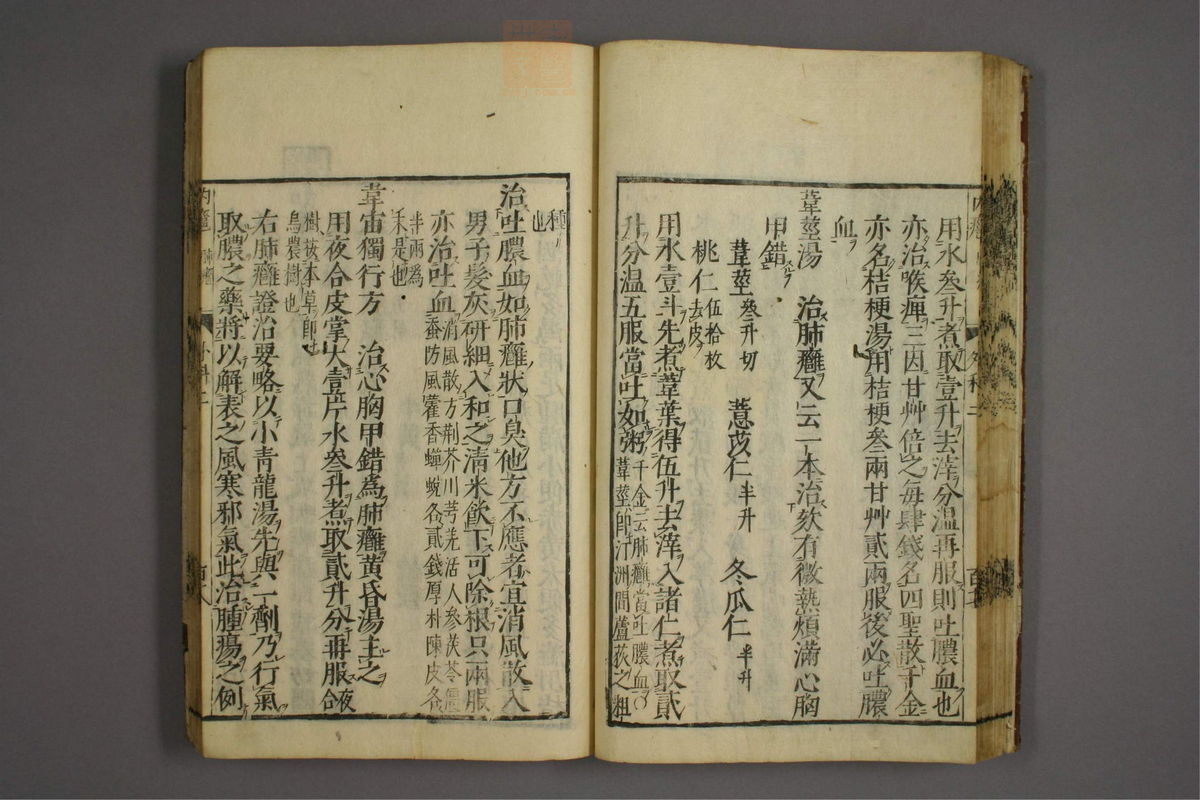 用水叁升煮取壹升去滓分溫再服則吐膿血也
亦治喉痺三因甘艸倍之每肆錢名四聖散千金
亦名桔梗湯用桔梗叁兩甘艸貳兩服後必吐膿
血
葦莖湯 治肺癰又云一本治欬有微熱煩滿心胸
甲錯
葦莖叁升切 薏苡仁半升 冬瓜仁半升
桃仁伍拾枚去皮
用水壹斗先煮葦葉得伍升去滓入諸仁煮取貳
升分溫五服當吐如粥千金云肺癰當吐膿血○
葦莖即汀洲間蘆荻之粗
種
也
治吐膿血如肺癰狀口臭他方不應者宜消風散入
男子髮灰研細入和之清米飲下可除根只兩服
亦治吐血消風散方荆芥川芎羌活人參茯苓殭
蚕防風藿香蟬蛻各貳錢厚朴陳皮各
半兩爲
末是也
韋宙獨行方 治心胸甲錯爲肺癰黄昏湯主之
用夜合皮掌大壹斤水叁升煮取貳升分再服夜合
樹彼本草即
烏農樹也
右肺癰證治要略以小青龍湯先與一劑乃行氣
取膿之藥將以解表之風寒邪氣此治腫瘍之例
外科二
外科二